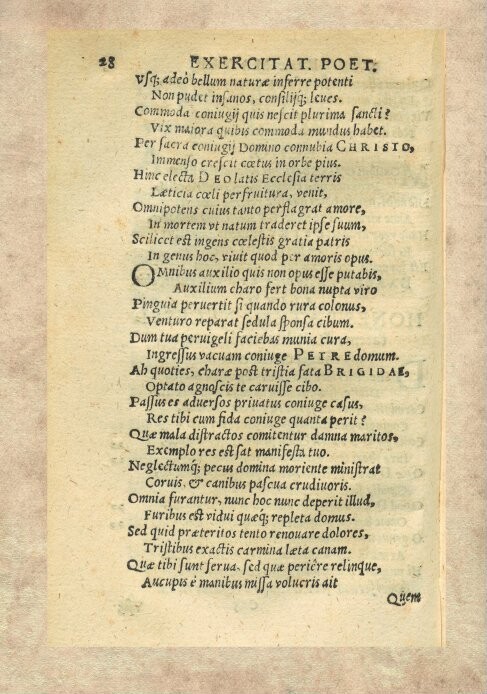 28 EXERCITAT. POET.
Vsq; adeò bellum naturæ inferre potenti
Non pudet insanos, consilijq; leues.
Commoda coniugij quis nescit plurima sancti?
Vix maiora quibus commoda mundus habet.
Per sacra coniugij Domino connubia CHRISTO,
Immenso crescit cœtus in orbe pius.
Hinc electa DEO latis Ecclesia terris
Læticia cœli perfruitura, venit,
Omnipotens cuius tanto perflagrat amore,
In mortem vt natum traderet ipse suum,
Scilicet est ingens cœlestis gratia patris
In genus hoc, viuit quod per amoris opus.
OMnibus auxilio quis non opus esse putabis,
Auxilium charo fert bona nupta viro
Pinguia peruertit si quando rura colonus,
Venturo reparat sedula sponsa cibum.
Dum tua peruigeli faciebas munia cura,
Ingressus vacuam coniuge PETRE domum.
Ah quoties, charæ post tristia fata BRIGIDAE,
Optato agnoscis te caruisse cibo.
Passus es aduersos priuatus coniuge casus,
Res tibi cum fida coniuge quanta perit?
Quæ mala distractos comitentur damna maritos,
Exemplo res est sat manifesta tuo.
Neglectumq; pecus domina moriente ministrat
Coruis, & canibus pascua crudiuoris.
Omnia furantur, nunc hoc nunc deperit illud,
Furibus est vidui quæq; repleta domus.
Sed quid præteritos tento renouare dolores,
Tristibus exactis carmina læta canam.
Quæ tibi sunt serua, sed quæ perière relinque,
Aucupis è manibus missa volucris ait
Quem